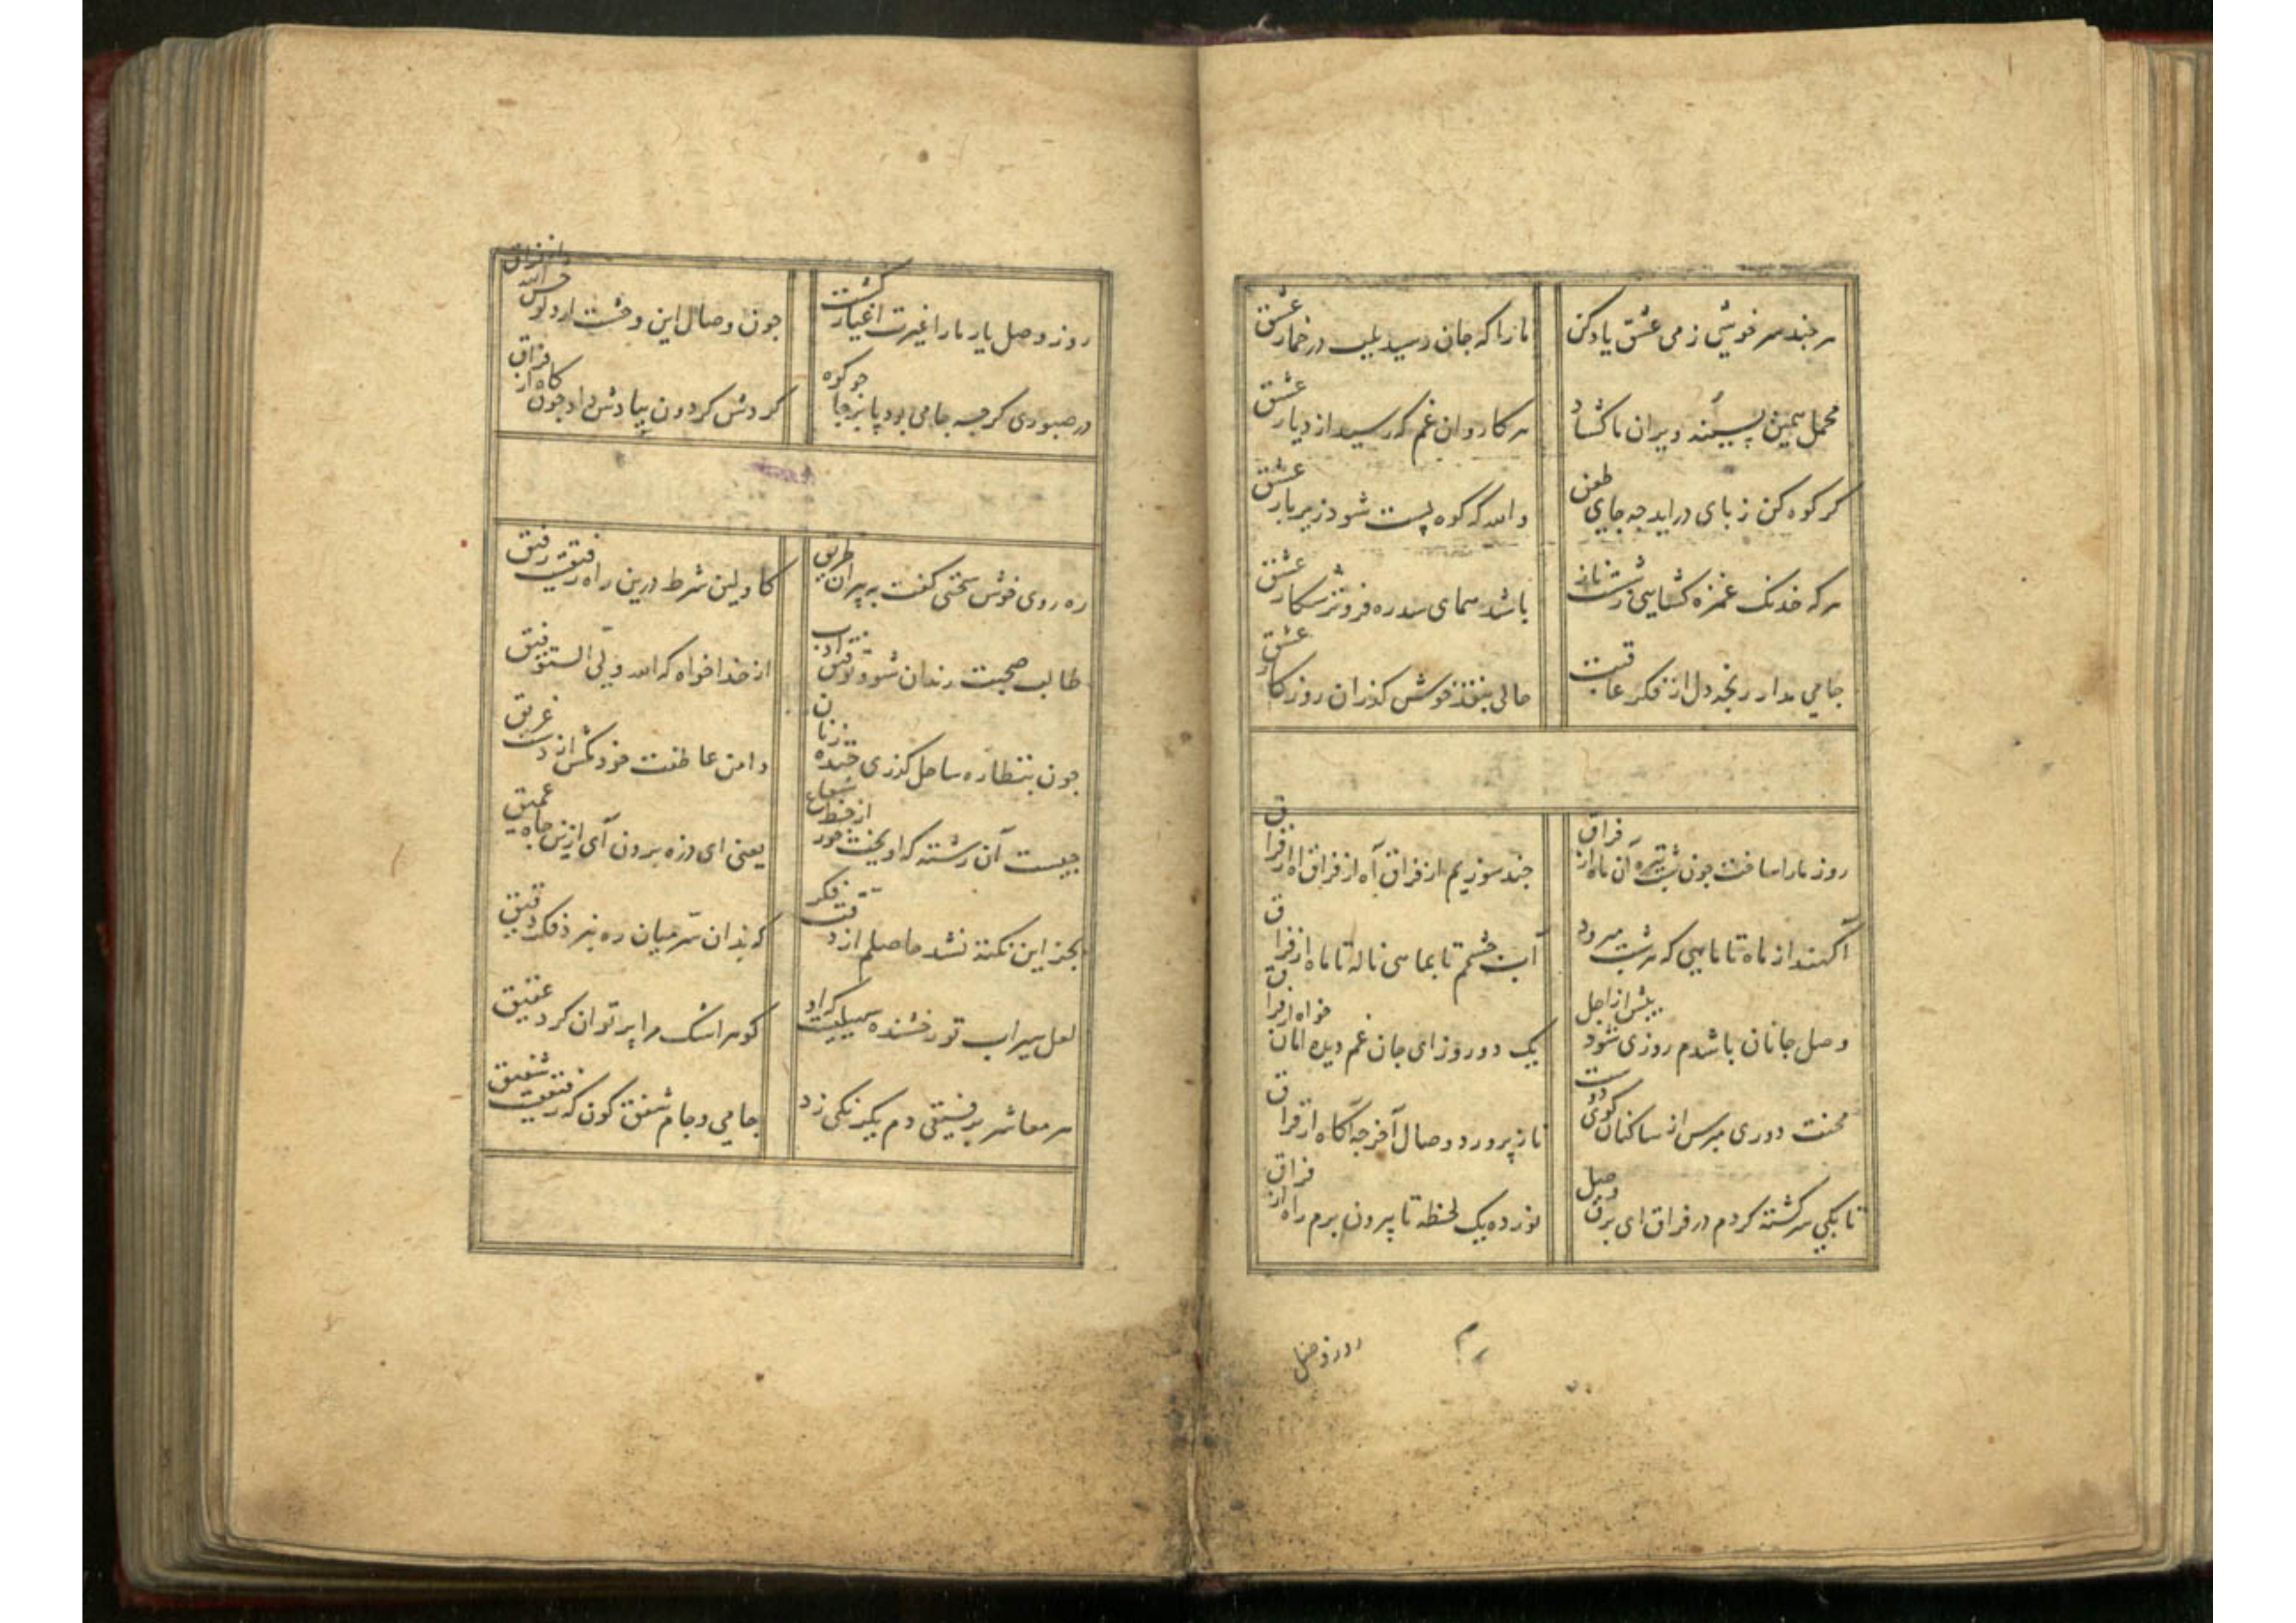 هر چند سر خوشی ز می عشق یاد کن ما را که جان رسید بلب در خمار عشق
محمل سمین پسینه ویران ما کشاد هر کاروان غم که رسید از دیار عشق
کر کوه کن ز پای دراید چه جای طعن والله که کوه پست شود زیر بار عشق
هر که خدنک غمزه کشایی ز شست ناز باشد همای سدره فروتر شکار عشق
جامی مدار رنجه دل از فکر عاقبت حالی بنقد خوش کذران روزکار عشق
روز ما را ساخت چون شب تیره آن ماه از فراق چند سوزیم از فراق آه از فراق آه از فراق
آکهند از ماه تا ماهی که هر شب میرود آب چشمم تا بماهی ناله تا ماه از فراق
وصل جانان باشدم روزی شود پیش از اجل یک دو روز ای جان غم دیده امان خواه از فراق
محنت دوری مپرس از ساکنان کوی دوست ناز پرورد وصال آخر چه آکاه از فراق
تا بکی سرکشته کردم در فراق ای برق وصل نور ده یک لحظه تا بیرون برم راه از فراق
روز وصل
روز وصل یار ما را غیرت اغیار کشت چون وصال این وحشت ارد
در صبوری کرچه جامی بود پا بر جا چو کوه کردش کردون بیادش داد چون کاه از فراق
ره روی خوش سخنی کفت به پیران طریق کاولین شرط درین راه رفیقست رفیق
طالب صحبت رندان شو و توفیق ادب از خدا خواه که الله ولی التوفیق
چون بنظاره ساحل کذری خنده زنان دامن عاطفت خود مکش از دست غریق
چیست آن رشته که اویخت خور از خط شعاع یعنی ای ذره برون آی ازین چاه عمیق
بجز این نکته نشد حاصلم از دقت فکر که بدان سر میان ره نبرد فکر دقیق
لعل سیراب تو رخشنده سهیلیست کزاو کوهر اشک مرا پر توان کرد عقیق
هر معاشر برفیقی دم یکرنکی زد جامی و جام شفق کون که رفیقیست شفیق